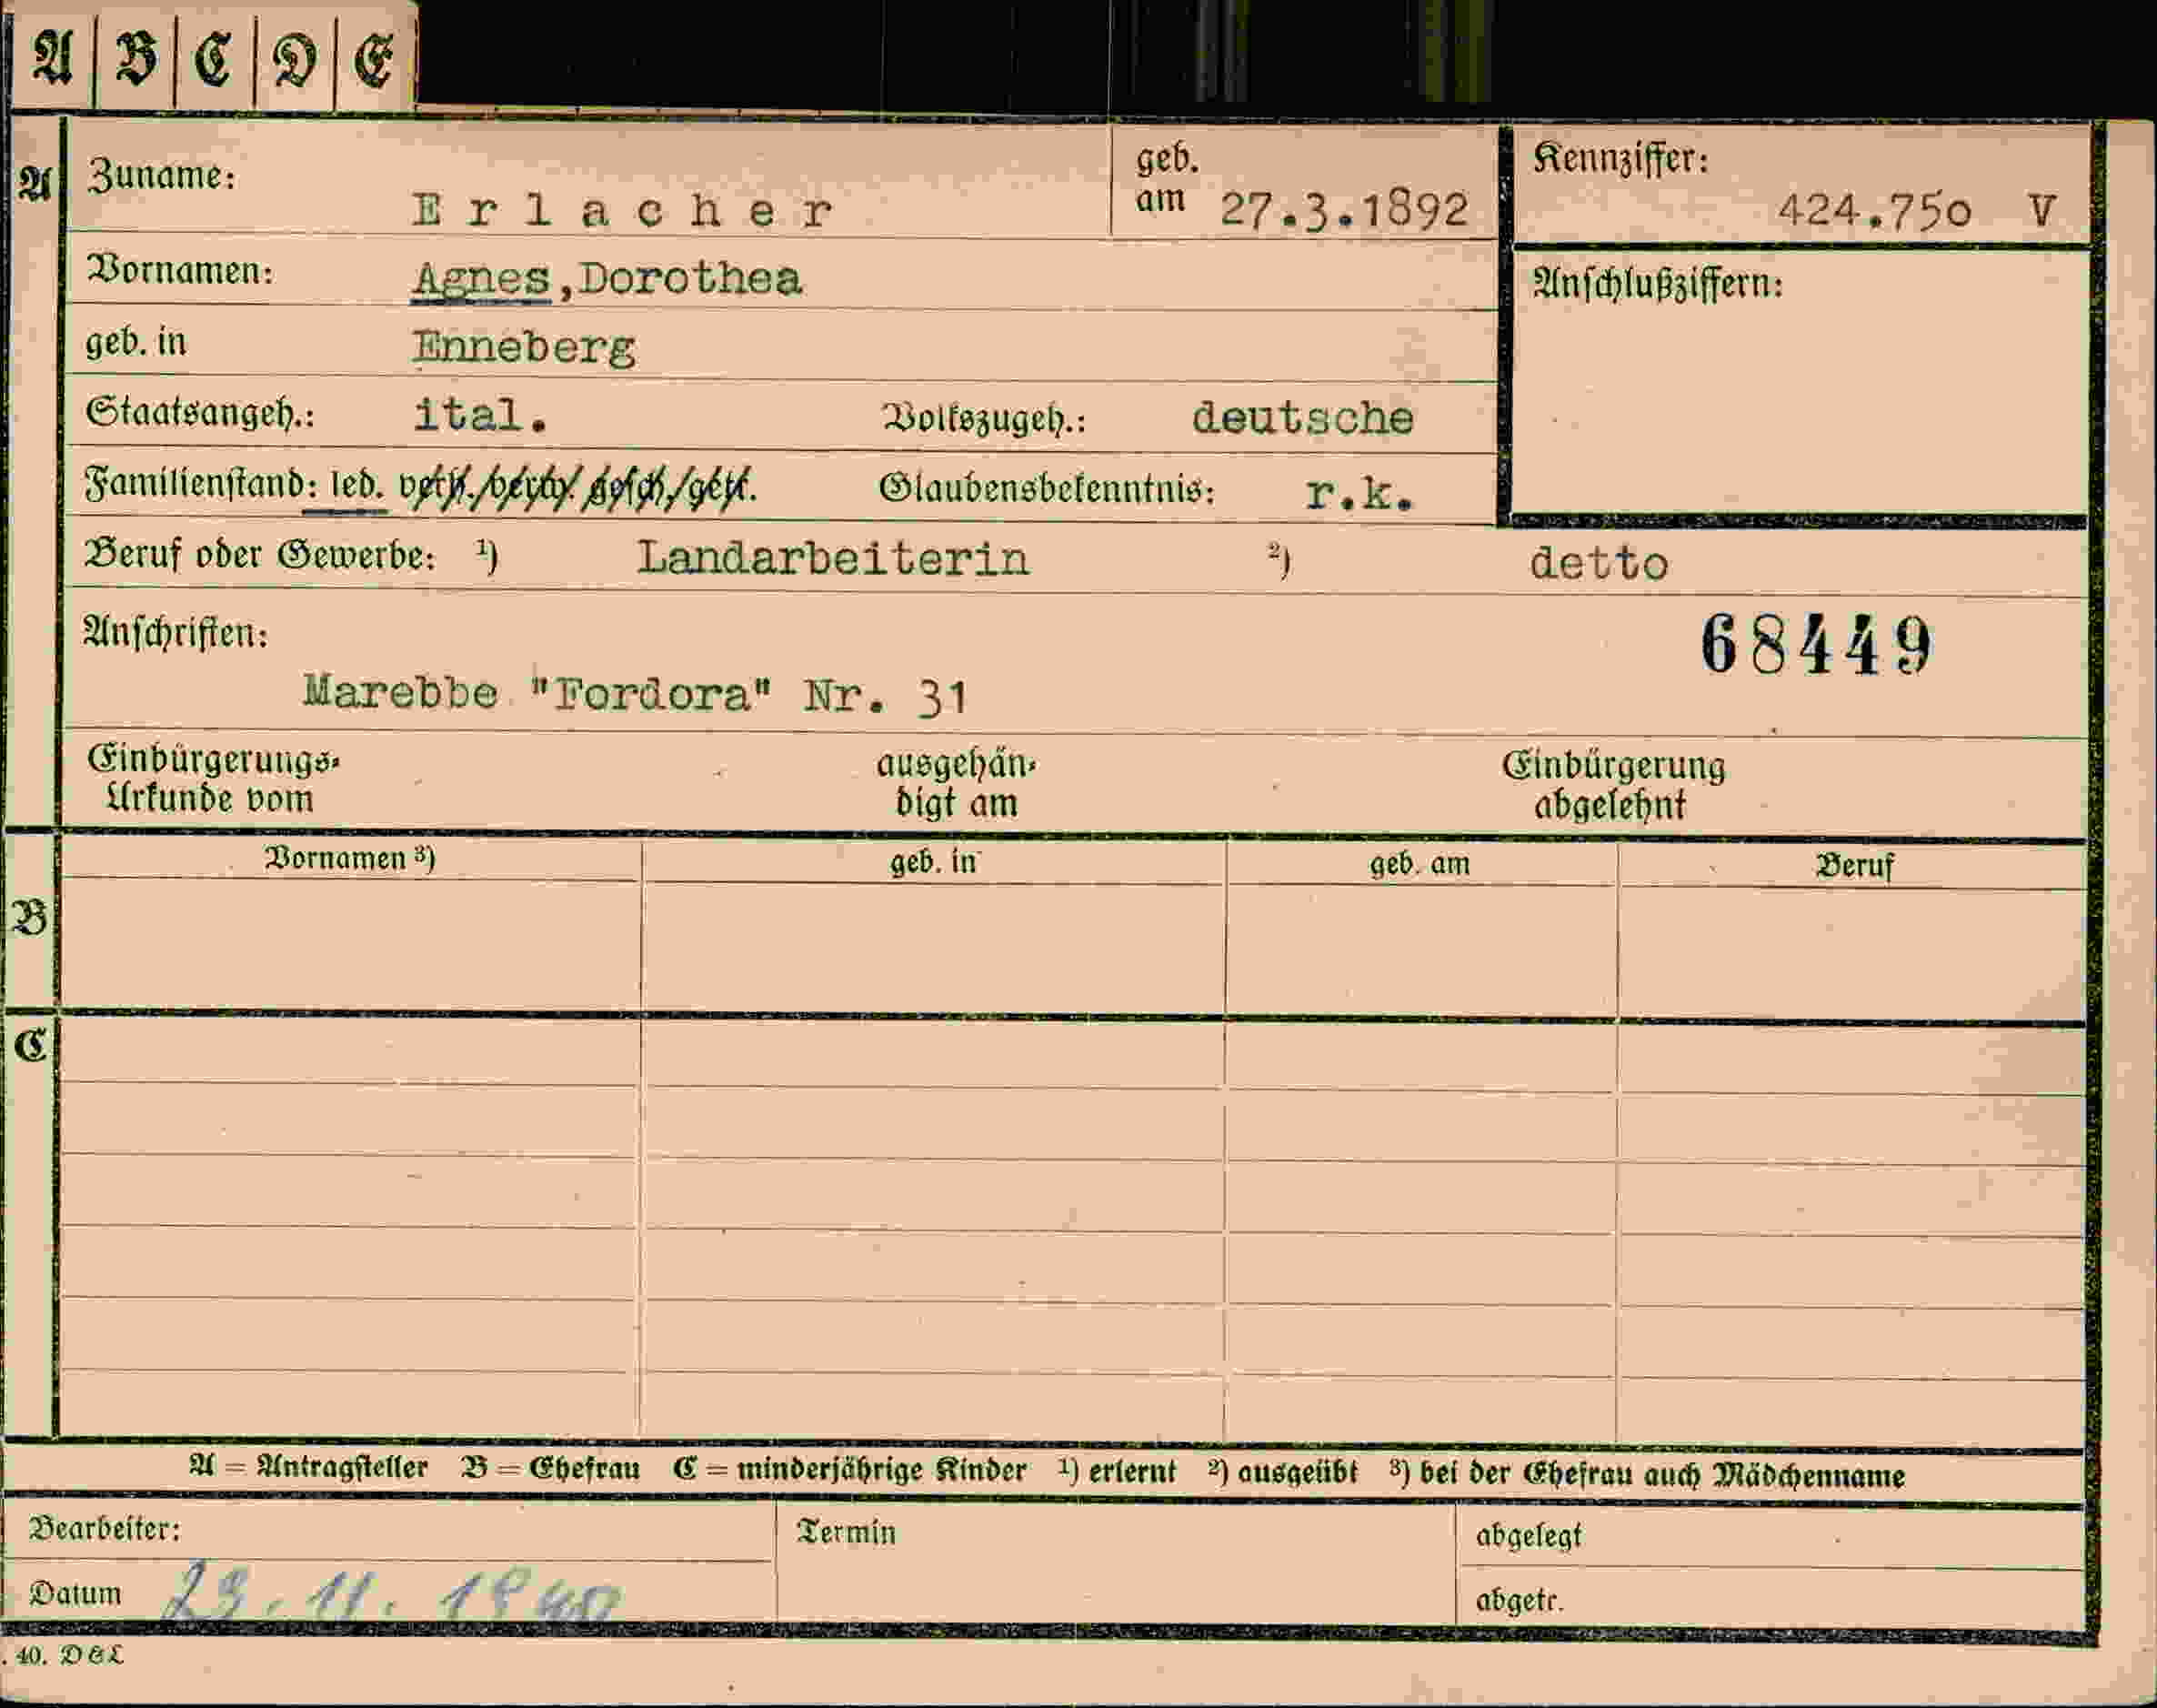 A | B | C | D | E
A
Zuname: Erlacher geb. am 27.3.1892 Kennziffer: 424.750 V
Vornamen: Agnes,Dorothea Anschlußziffern:
geb. in Enneberg
Staatsangeh.: ital. Volkszugeh.: deutsche
Familienstand: led. verh./verw./gesch./getr. Glaubensbekenntnis: r.k.
Beruf oder Gewerbe: 1) Landarbeiterin 2) detto
Anschriften: 68449
Marebbe "Fordora" Nr. 31
Einbürgerungs- ausgehän- Einbürgerung
Urkunde vom digt am abgelehnt
B
Vornamen 3) geb. in geb. am Beruf
C
A = Antragsteller B = Ehefrau C = minderjährige Kinder 1) erlernt 2) ausgeübt 3) bei der Ehefrau auch Mädchenname
Bearbeiter: Termin abgelegt
Datum 23.11.1940 abgetr.
. 40. D&L